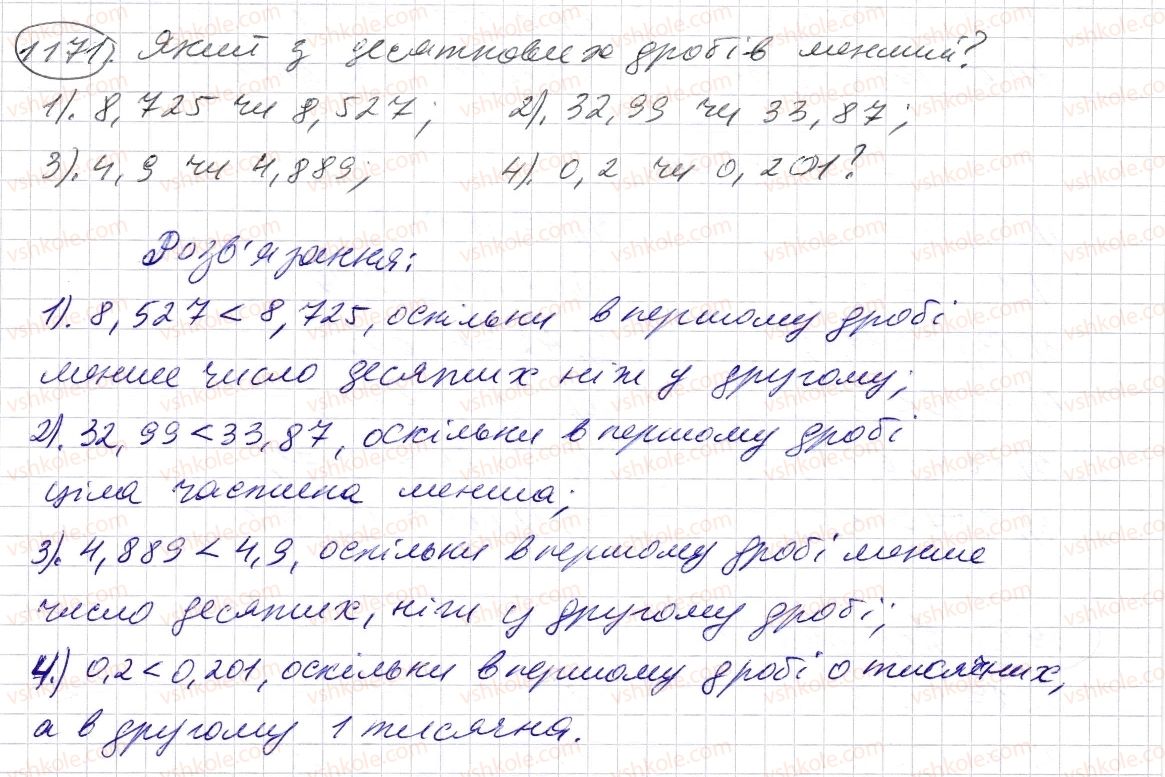 1171). Який з десяткових дробів менший?
1). 8,725 чи 8,527; 2). 32,99 чи 33,87;
3). 4,9 чи 4,889; 4). 0,2 чи 0,201?
Розв'язання:
1). 8,527 < 8,725, оскільки в першому дробі
менше число десятих ніж у другому;
2). 32,99 < 33,87, оскільки в першому дробі
ціла частина менша;
3). 4,889 < 4,9, оскільки в першому дробі менше
число десятих, ніж у другому дробі;
4.) 0,2 < 0,201, оскільки в першому дробі 0 тисячних,
а в другому 1 тисячна.